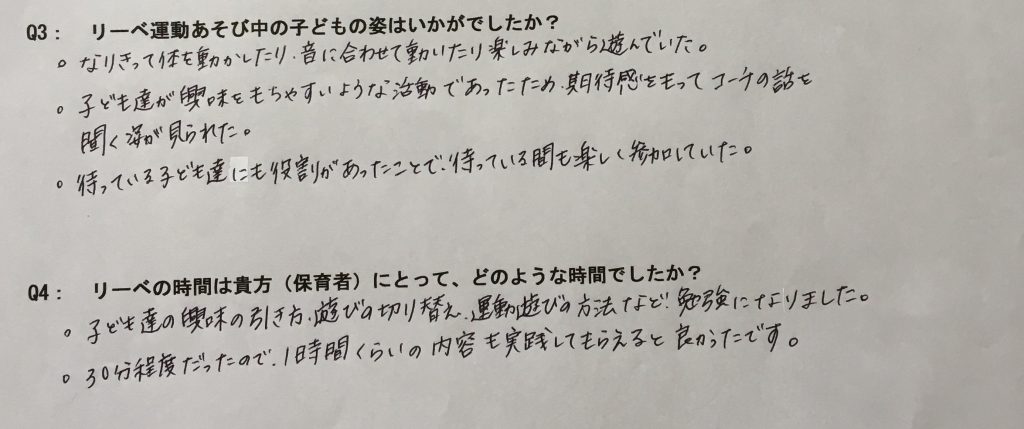 Q3： リーベ運動あそび中の子どもの姿はいかがでしたか？
。なりきって体を動かしたり、音に合わせて動いたり楽しみながら遊んでいた。
。子ども達が興味をもちやすいような活動であったため、期待感をもってコーチの話を
聞く姿が見られた。
。待っている子ども達にも役割があったことで、待っている間も楽しく参加していた。
Q4： リーベの時間は貴方（保育者）にとって、どのような時間でしたか？
。子ども達の興味の引き方、遊びの切り替え、運動遊びの方法など、勉強になりました。
。30分程度だったので、1時間くらいの内容も実践してもらえると良かったです。